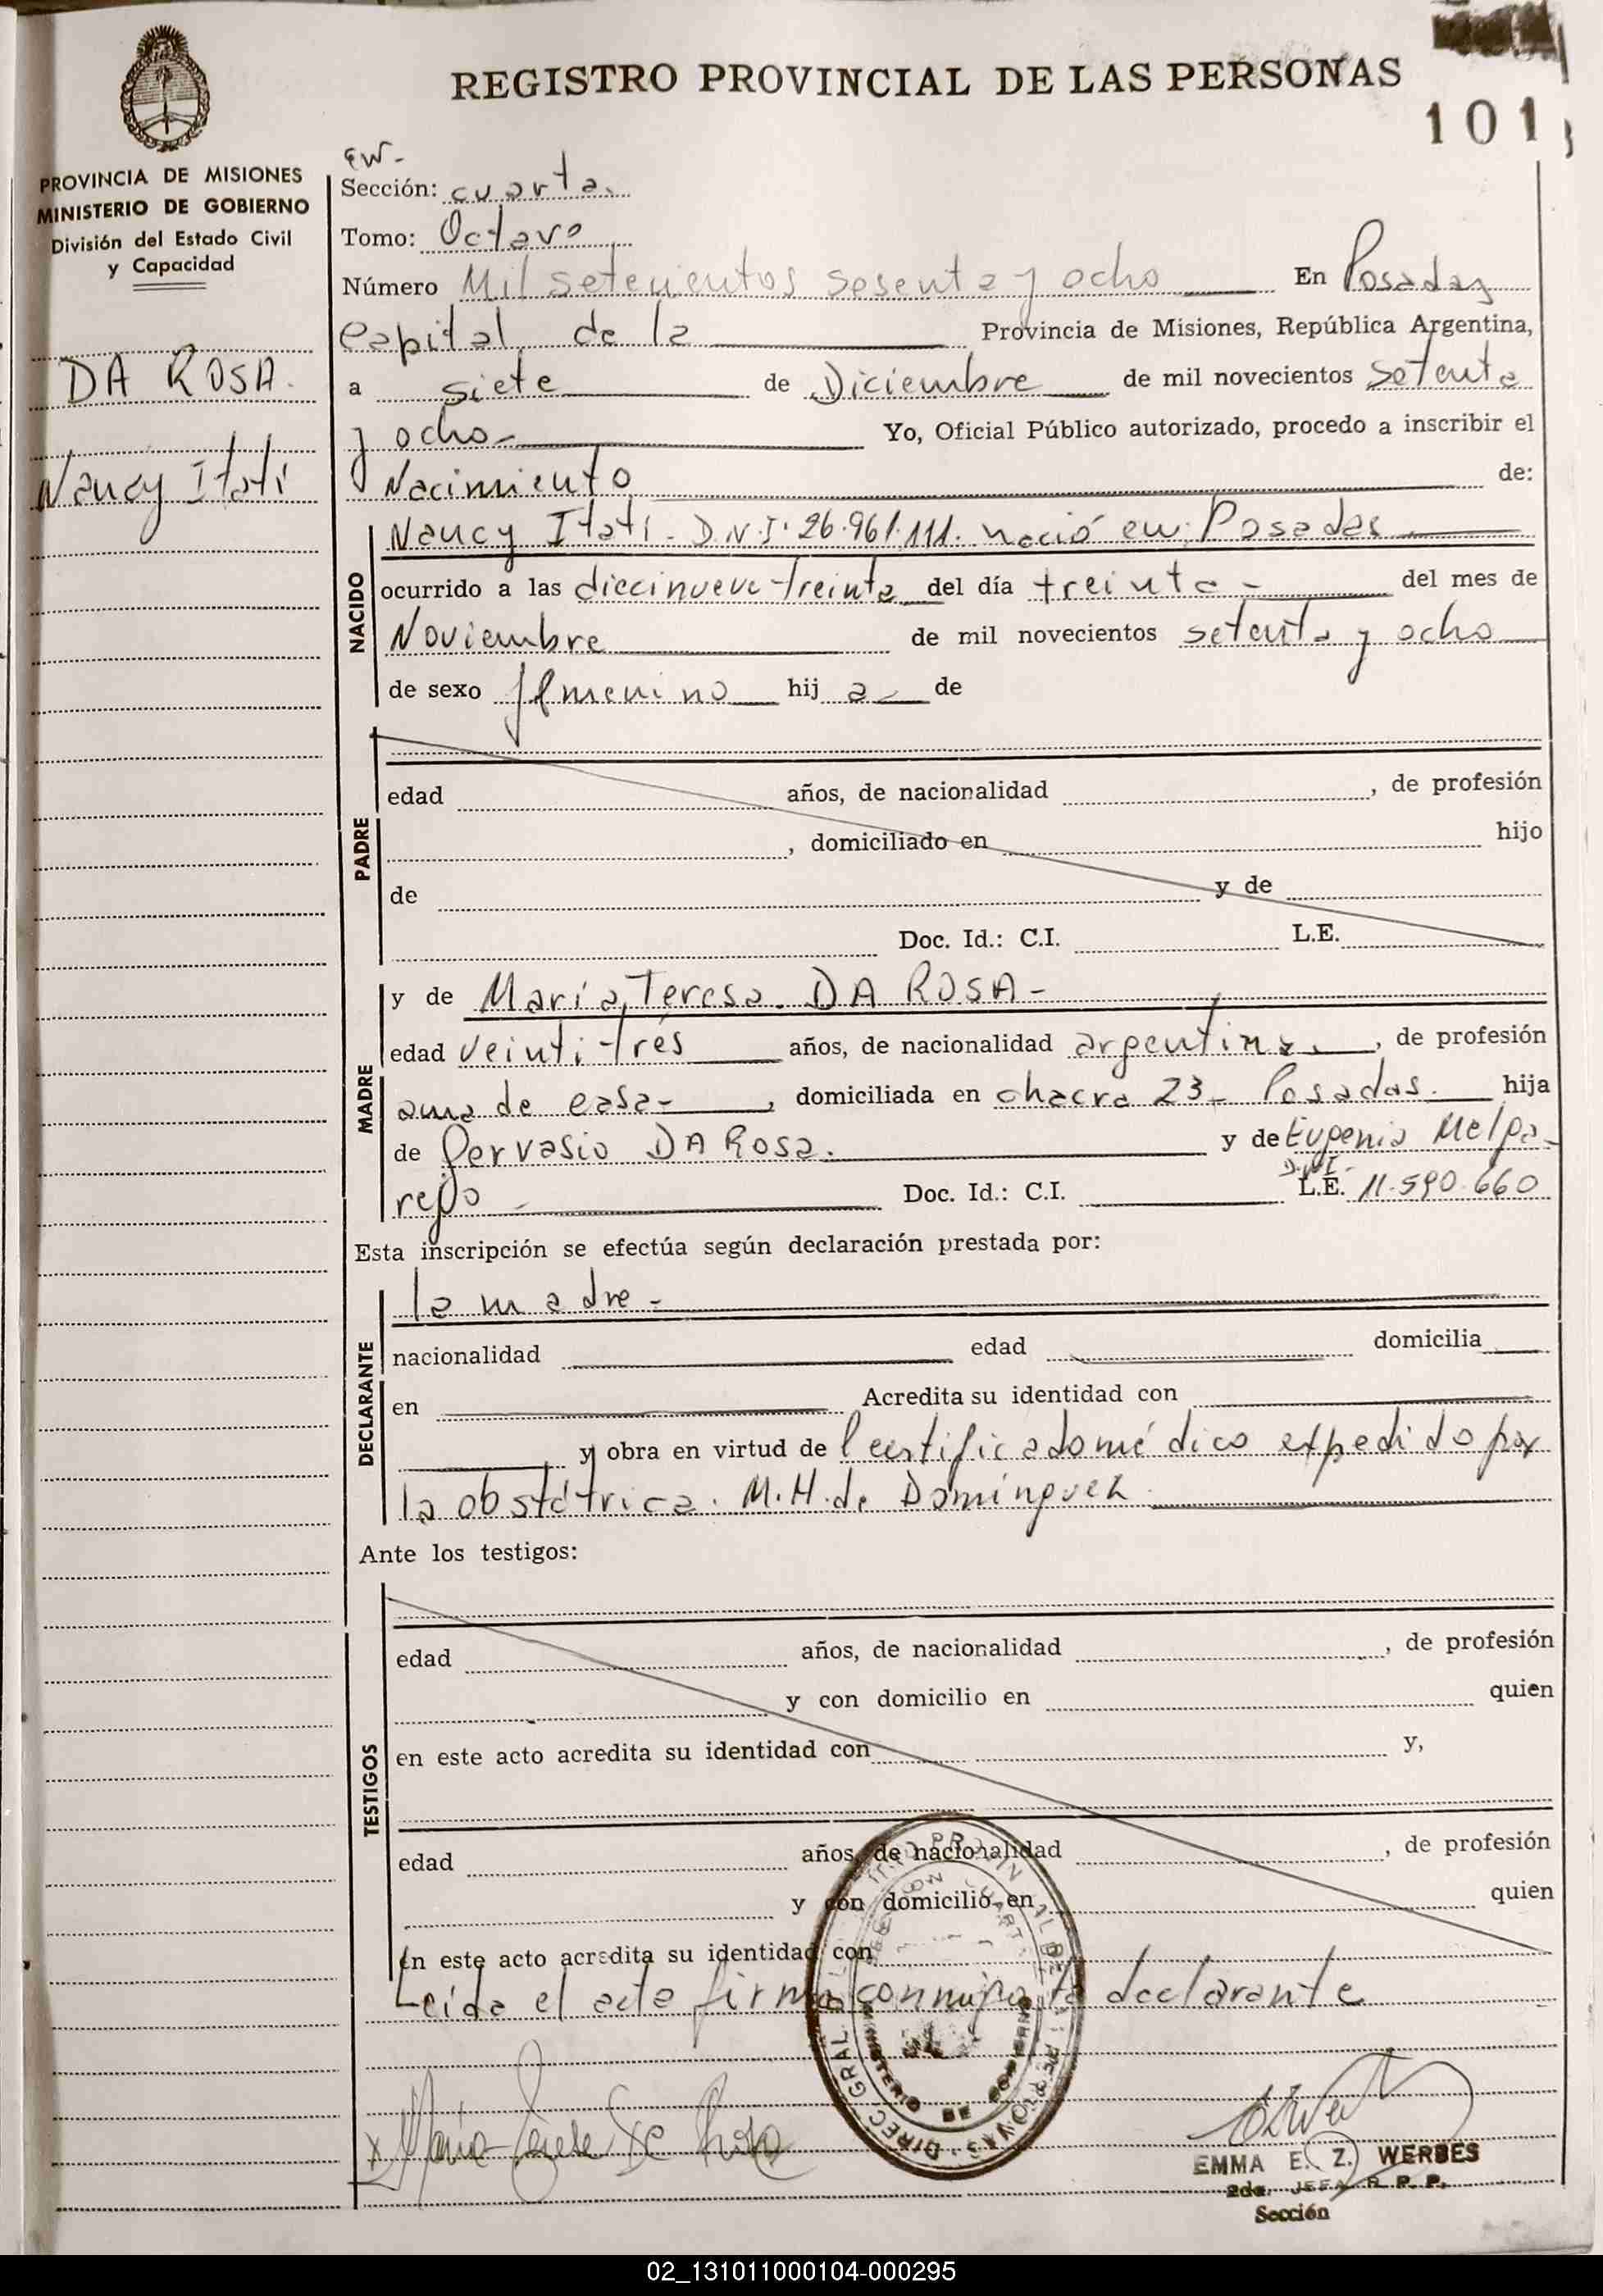 REGISTRO PROVINCIAL DE LAS PERSONAS
101
PROVINCIA DE MISIONES
MINISTERIO DE GOBIERNO
División del Estado Civil
y Capacidad
DA ROSA.
Nancy Itatí
EW-
Sección: cuarta.
Tomo: Octavo
Número Mil setecientos sesenta y ocho En Posadas
capital de la Provincia de Misiones, República Argentina,
a siete de Diciembre de mil novecientos setenta
y ocho- Yo, Oficial Público autorizado, procedo a inscribir el
Nacimiento de:
NACIDO
Nancy Itatí - D.N.I. 26.961.111. nació en: Posadas
ocurrido a las diecinueve treinta del día treinta - del mes de
Noviembre de mil novecientos setenta y ocho
de sexo femenino hij a de
PADRE
edad años, de nacionalidad , de profesión
, domiciliado en hijo
de y de
Doc. Id.: C.I. L.E.
MADRE
y de María Teresa. DA ROSA -
edad veintitrés años, de nacionalidad argentina, de profesión
ama de casa- , domiciliada en chacra 23- Posadas. hija
de Gervasio DA ROSA. y de Eugenia Melga-
rejo - Doc. Id.: C.I. D.N.I. L.E. 11.590.660
Esta inscripción se efectúa según declaración prestada por:
DECLARANTE
la madre -
nacionalidad edad domicilia
en Acredita su identidad con
y obra en virtud de certificado médico expedido por
la obstétrica. M.H. de Domínguez
Ante los testigos:
TESTIGOS
edad años, de nacionalidad , de profesión
y con domicilio en quien
en este acto acredita su identidad con y,
edad años, de nacionalidad , de profesión
y con domicilio en quien
En este acto acredita su identidad con
Leída el acta firma conmigo la declarante
María Teresa Da Rosa
EMMA E. Z. WERBES
2da. JEFA R. P. P.
Sección
02_131011000104-000295